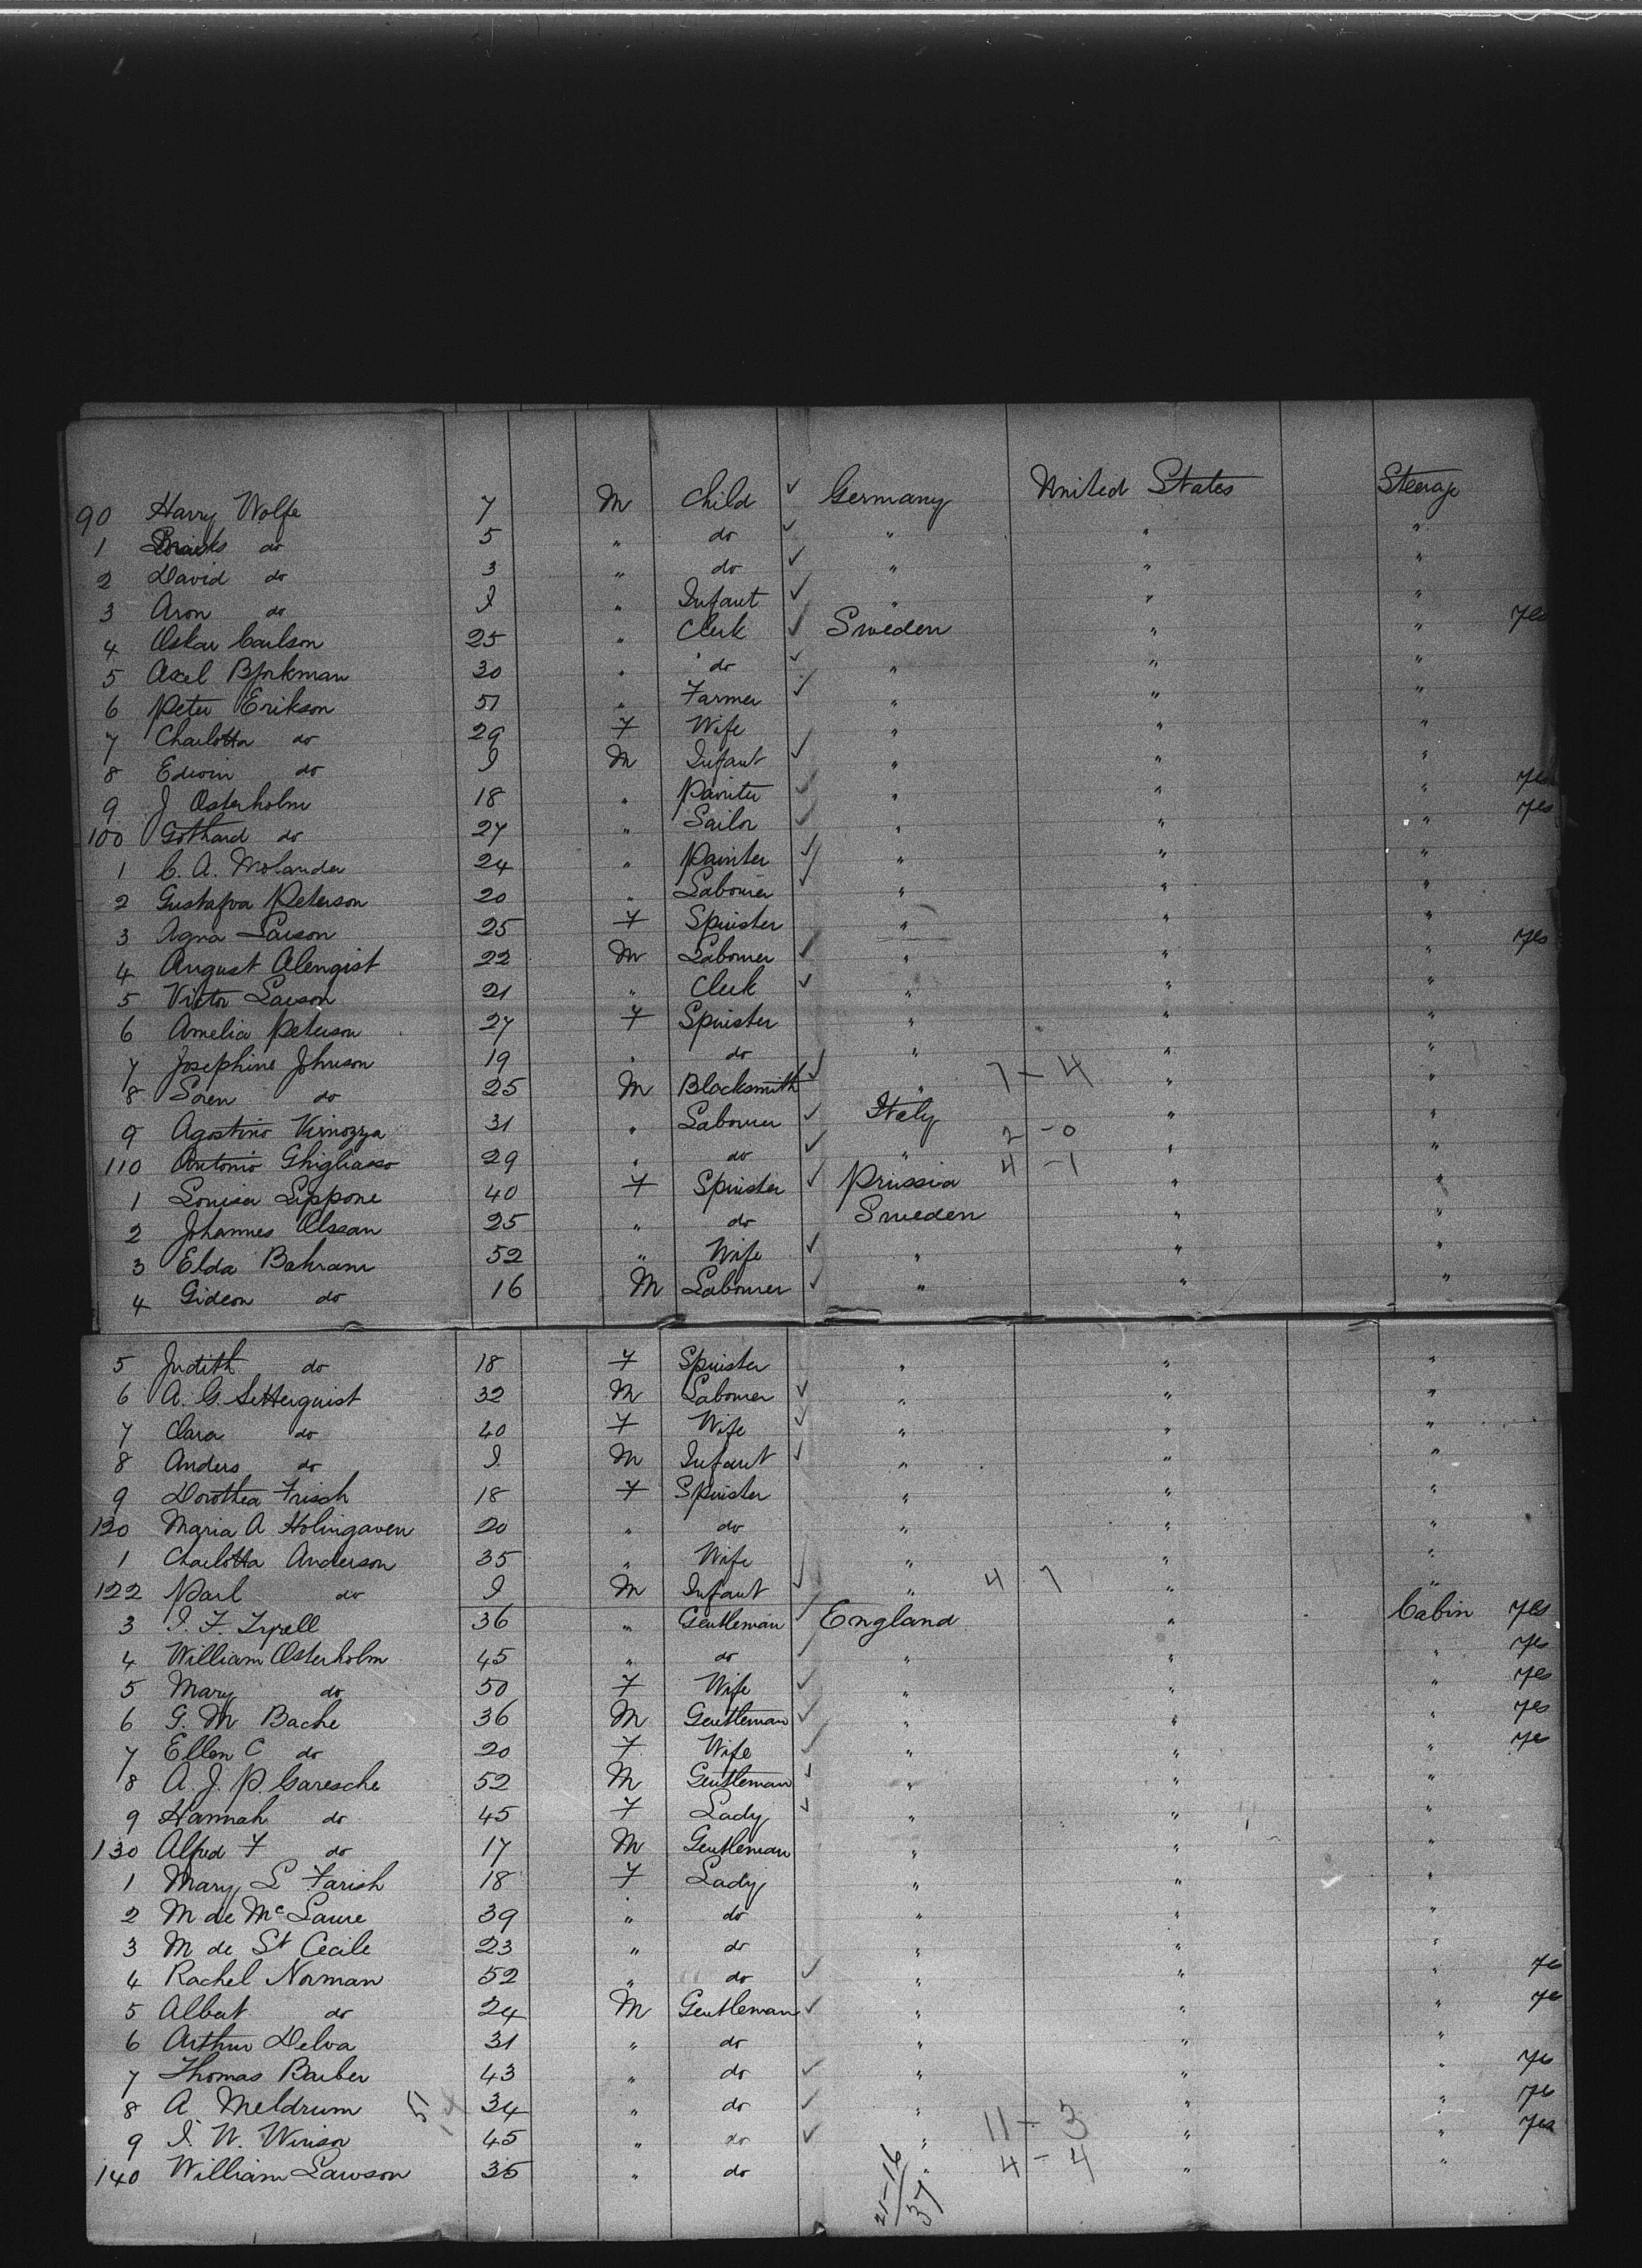 90 Harry Wolfe 7 M Child ✓ Germany United States Steerage
1 do 5 " do ✓ " " "
2 David do 3 " do ✓ " " "
3 Aron do I " Infant ✓ " " "
4 Oskar Carlson 25 " Clerk ✓ Sweden " " yes
5 Axel Bjorkman 30 " do ✓ " " "
6 Peter Erikson 51 " Farmer ✓ " " "
7 Charlotta do 29 F Wife " " "
8 Edwin do I M Infant ✓ " " "
9 J Osterholm 18 " Painter ✓ " " " yes
100 Gothard do 27 " Sailor ✓ " " " yes
1 C. A. Molander 24 " Painter ✓ " " "
2 Gustafva Peterson 20 " Labourer ✓ " " "
3 Agna Larson 25 F Spinster " " "
4 August Alengist 22 M Labourer ✓ " " " yes
5 Victor Larson 21 " Clerk ✓ " " "
6 Amelia Peterson 27 F Spinster " " "
7 Josephine Johnson 19 " do " " "
8 Soren do 25 M Blacksmith ✓ " 7-4 " "
9 Agostino Virnozza 31 " Labourer ✓ Italy " "
110 Antonio Ghigliasso 29 " do ✓ " 2-0 " "
1 Louisa Lippone 40 F Spinster ✓ Prussia 4-1 " "
2 Johannes Olssan 25 " do Sweden " "
3 Elda Bahram 52 " Wife ✓ " " "
4 Gideon do 16 M Labourer ✓ " " "
5 Judith do 18 F Spinster " " "
6 A. G. Setterquist 32 M Labourer ✓ " " "
7 Clara do 40 F Wife ✓ " " "
8 Anders do I M Infant ✓ " " "
9 Dorothea Frisch 18 F Spinster " " "
120 Maria A Holingaven 20 " do " " "
1 Charlotta Anderson 35 " Wife " " "
122 Karl do I M Infant ✓ " 4 7 " "
3 I. F. Tyrell 36 " Gentleman ✓ England " Cabin yes
4 William Osterholm 45 " do ✓ " " " yes
5 Mary do 50 F Wife ✓ " " " yes
6 G. M Bache 36 M Gentleman ✓ " " " yes
7 Ellen C do 20 F Wife ✓ " " " yes
8 A. J. P. Garesche 52 M Gentleman ✓ " " "
9 Hannah do 45 F Lady ✓ " " "
130 Alfred F do 17 M Gentleman " " "
1 Mary L Farish 18 F Lady " " "
2 M de Mc Laure 39 " do " " "
3 M de St Cecile 23 " do " " "
4 Rachel Norman 52 " do ✓ " " " yes
5 Albert do 24 M Gentleman ✓ " " " yes
6 Arthur Delva 31 " do " " "
7 Thomas Barber 43 " do ✓ " " " yes
8 A Meldrum 34 " do ✓ " " " yes
9 I. W. Winson 45 " do ✓ " 11-3 " " yes
140 William Lawson 35 " do " 4-4 " "
21-16
37